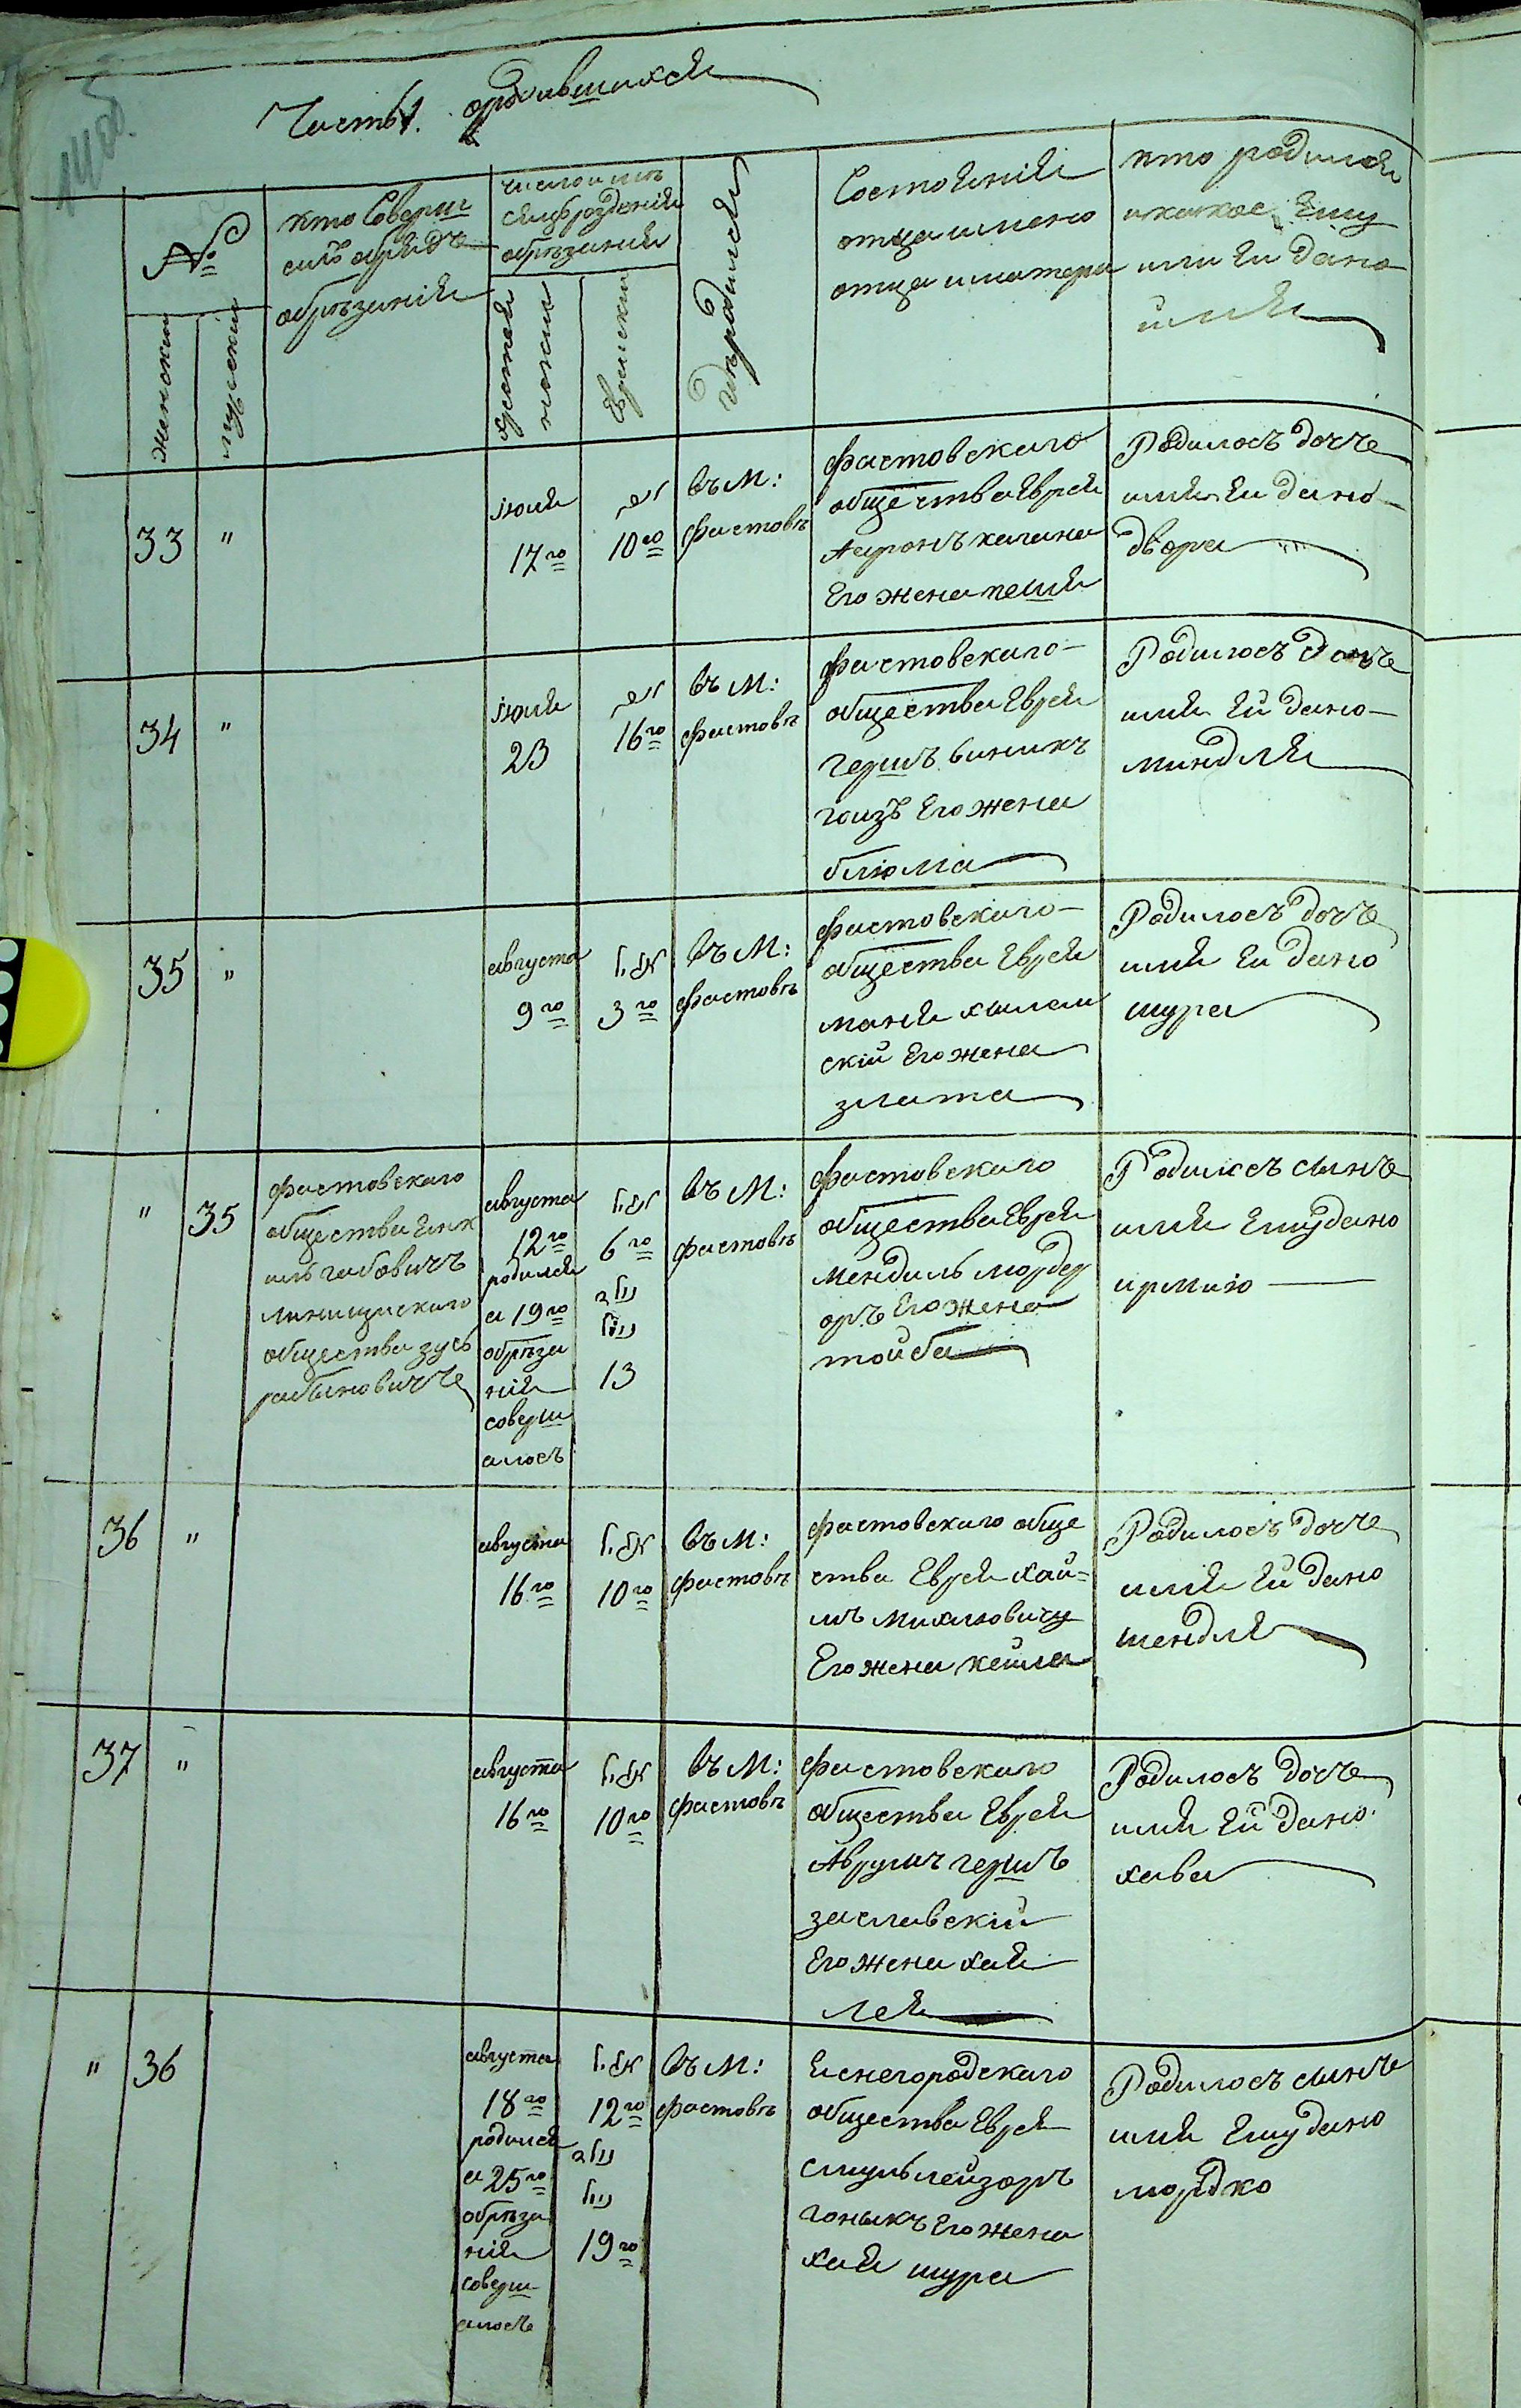 Часть 1. о родившихся
№
женскии
мужескии
кто Соверш
силъ обрядъ
обрѣзанія
число и мѣ
сяцъ рожденія
обрѣзанія
христиа
нскии
Еврейскии
Гдѣ родился
Состоянія
отца имено
отца и матери
кто родился
и какое Ему
или Ей дано
имя
33
"
июля
17го
10го
въ м:
фастовѣ
фастовскаго
общества Еврей
Ааронъ
Его жена песия
Родилось дочъ
имя Ей дано
двора
34
"
июля
23
16го
въ м:
фастовѣ
фастовскаго
общества Еврей
Гершъ
Его жена
блюма
Родилось дочъ
имя Ей дано
миндля
35
"
августа
9го
אב
3го
въ м:
фастовѣ
фастовскаго
общества Еврей
маня
скій Его жена
злата
Родилось дочъ
имя Ей дано
шура
"
35
фастовскаго
общества Янк
общества зусь
рабиновичъ
августа
12го
родился
а 19го
обрѣза
нія
соверш
алось
6го
13
въ м:
фастовѣ
фастовскаго
общества Еврей
Мендиль
Его жена
тойба
Родилсь сынъ
имя Ему дано
ирмию
36
"
августа
16го
10го
въ м:
фастовѣ
фастовскаго обще
ства Еврей хаи=
мъ михлювичъ
Его жена кейла
Родилось дочъ
имя Ей дано
шендля
37
"
августа
16го
10го
въ м:
фастовѣ
фастовскаго
общества Еврей
Аврумъ гершъ
заславскій
Его жена хая
лея
Родилось дочъ
имя Ей дано
хава
"
36
августа
18го
родился
а 25го
обрѣза
нія
соверш
алось
12го
19го
въ м:
фастовѣ
Ясногородскаго
общества Еврей
смуль лейзоръ
Его жена
хая шура
Родилось сынъ
имя Ему дано
мордко